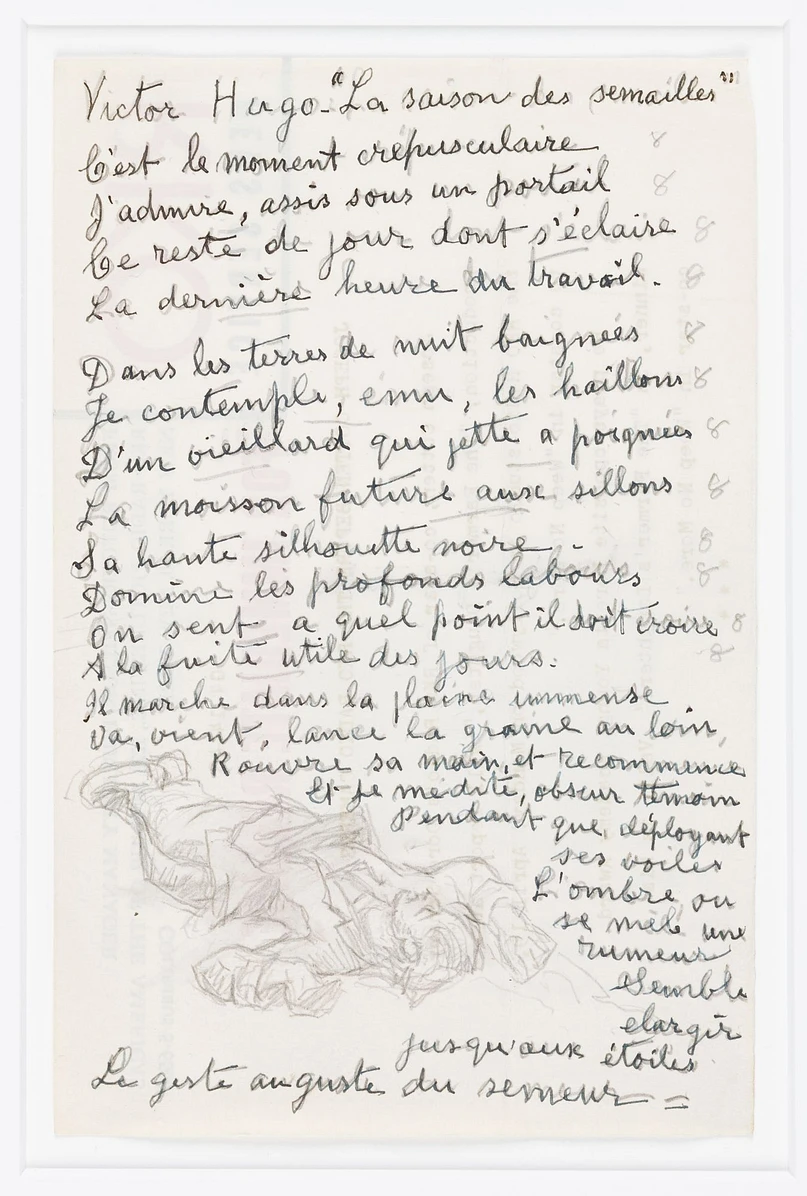 Victor Hugo - "La saison des semailles"
C'est le moment crepusculaire 8
J'admire, assis sous un portail 8
Ce reste de jour dont s'éclaire 8
La dernière heure du travail. 8
Dans les terres de nuit baignées 8
Je contemple, emu, les haillons 8
D'un vieillard qui jette a poignées 8
La moisson future aux sillons 8
Sa haute silhouette noire - 8
Domine les profonds labours 8
On sent a quel point il doit croire 8
A la fuite utile des jours. 8
Il marche dans la plaine immense
Va, vient, lance la graine au loin,
Rouvre sa main, et recommence
Et je medite, obscur temoin
Pendant que, déployant
ses voiles
L'ombre ou
se mele une
rumeur
Semble
elargir
jusqu'aux étoiles
Le geste auguste du semeur =